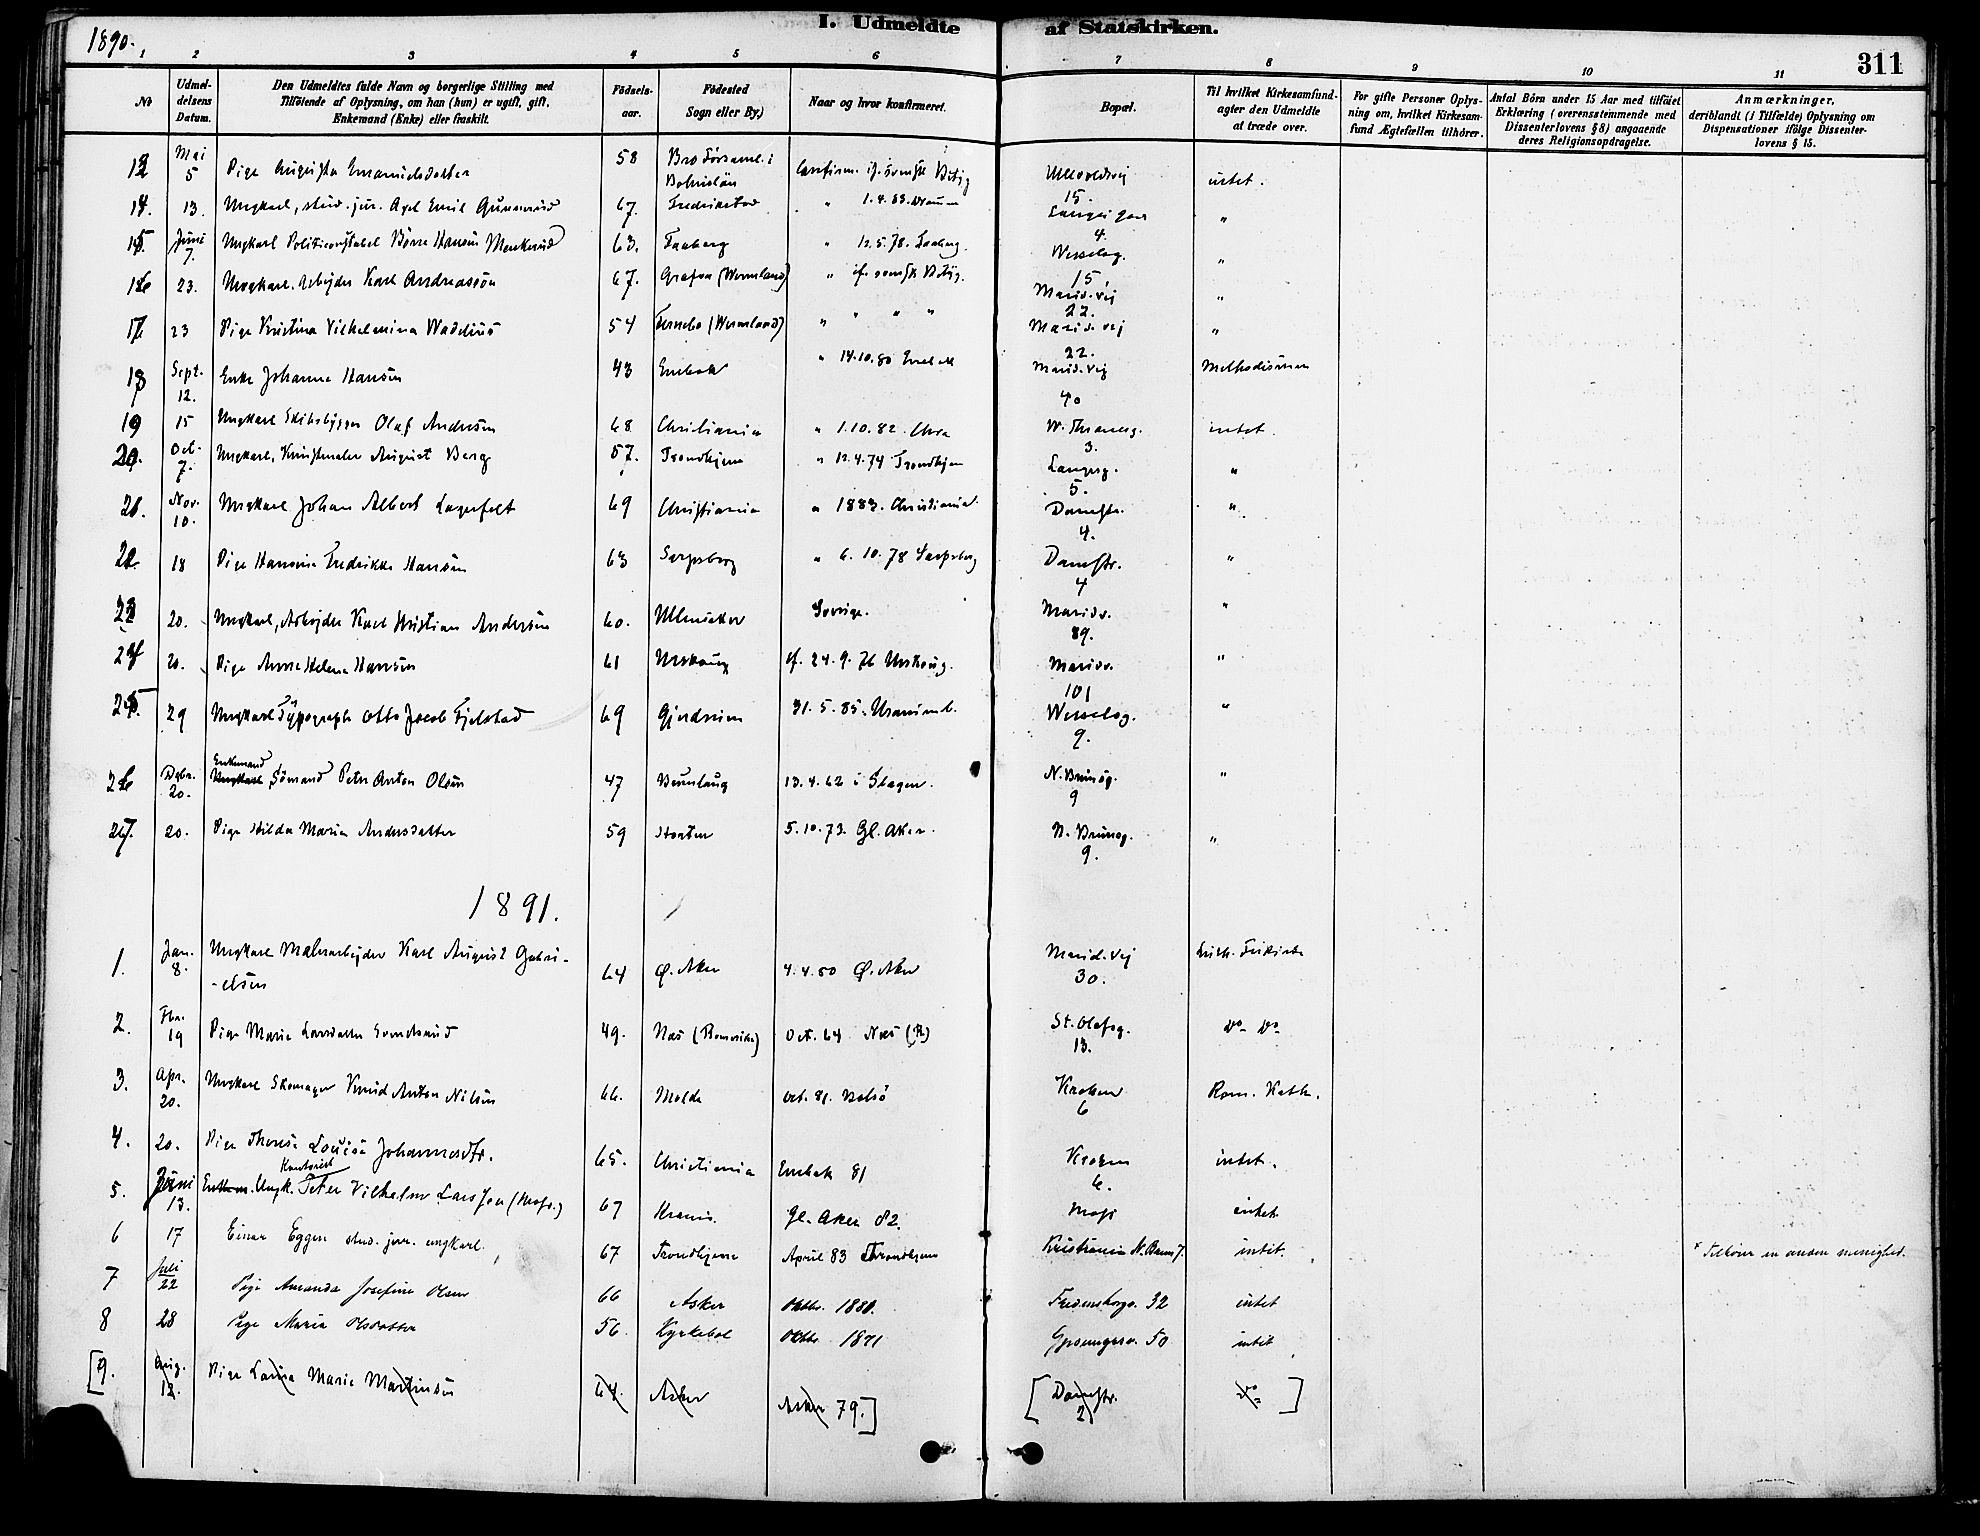 1890.
I. Udmeldte af Statskirken.
311
1 2 3 4 5 6 7 8 9 10 11
No
Udmeldelsens Datum.
Den Udmeldtes fulde Navn og borgerlige Stilling med Tilföiende af Oplysning, om han (hun) er ugift, gift, Enkemand (Enke) eller fraskilt.
Födselsaar.
Födested Sogn eller By.)
Naar og hvor konfirmeret.
Bopæl.
Til hvilket Kirkesamfund agter den Udmeldte at træde over.
For gifte Personer Oplysning om, hvilket Kirkesamfund Ægtefællen tilhörer.
Antal Börn under 15 Aar med tilföiet Erklæring (overensstemmende med Dissenterlovens § 8) angaaende deres Religionsopdragelse.
Anmærkninger, deriblandt (i Tilfælde) Oplysning om Dispensationer ifölge Dissenterlovens § 15.
Mai 5 Pige Augusta 58 intet.
14. 13. Ungkarl, stud. jur. Axel Emil 67. Fredrikstad " 1.4.83 4. "
15. Juni 7. Ungkarl Politiconstabel Hansen 63. Faaberg " 12.5.78. Faaberg. Wesselsg. 15 "
16 23. Ungkarl. Arbejder Karl Andreasson 67. (Wermland) " if. svensk Bevis. Marid. vej 22. "
17 23 Pige Kristina Vilhelmina Wadelius 54 (Wermland) " " " " Marid. vej 22. "
18 Sept. 12. Enke Johanne Hansen 43 Enebak " 14.10.80 Enebak Marid. vej 40 Methodismen
19 15 Ungkarl Skibsbygger Olaf Andersen 68 Christiania " 1.10.82. Chra 3. intet.
20. Oct. 7. Ungkarl, Kunstmaler August Berg 57. Trondhjem " 12.4.74 Trondhjem Langesg. 5. "
21. Nov. 10. Ungkarl Johan Albert Lagerfelt 69 Christiania " 1883. Christiania Damstr. 4. "
22 18 Pige Hansine Fredrikke Hansen 63 Sarpsborg " 6.10.78 Sarpsborg Damstr. 4 "
23 20. Ungkarl, Arbejder Karl Kristian Andersen 60. Ullensaker Sverige. Maridv. 89. "
24 20. Pige Anne Helene Hansen 61 Urskoug cf. 24.9.76 Urskoug. Maridv. 101 "
25. 29 Ungkarl Typograph Otto Jacob Fjelstad 69 Gjerdrum 31.5.85. Wesselsg. 9. "
26 Dcbr. 20. Enkemand Sömand Peter Anton Olsen 47 13.4.62 i Slagen. N. Brunsg. 9 "
27. 20. Pige Hilda Maria Andersdatter 59 Horten 5.10.73. Gl. Aker. N. Brunsg. 9. "
1891.
1. Jan. 8. Ungkarl Karl August Gabri-
-elsen 64 Ø. Aker 4.4.80 Ø. Aker Marid. vej 30. Luth. Frikirke
2. Fbr. 19 Pige Marie Larsdatter 49. Næs (Romerike) Oct. 64 Næs (R) St. Olafsg. 13. do do
3. Apr. 20. Ungkarl Skomager Knud Anton Nilsen 66. Molde oct. 81. Bolsö Kroken 6 Rom. Kath.
4. 20. Pige Therese Lovise Johannesdtr. 65. Christiania Enebak 81 Kroken 6. intet.
5. Juni 13. Ungk. Kontorist Peter Vilhelm Larssen 67 Gl. Aker 82. intet
6 17 Einar Eggen stud. jur. ungkarl. 67 Trondhjem April 83 Throndhjem Kristiania N. Brun 7. intet. * Tilhører en anden menighed.
7 Juli 22 Pige Amanda Josefine Olsen 66 Asker Oktbr. 1880. Fredensborgv. 32 intet
8 28 Pige Maria Olsdatter 56. Oktbr. 1871 50 intet
[9. Aug. 12. Pige Marie Martinsen 64. Asker Asker 79.] [Damstr. 2 do]